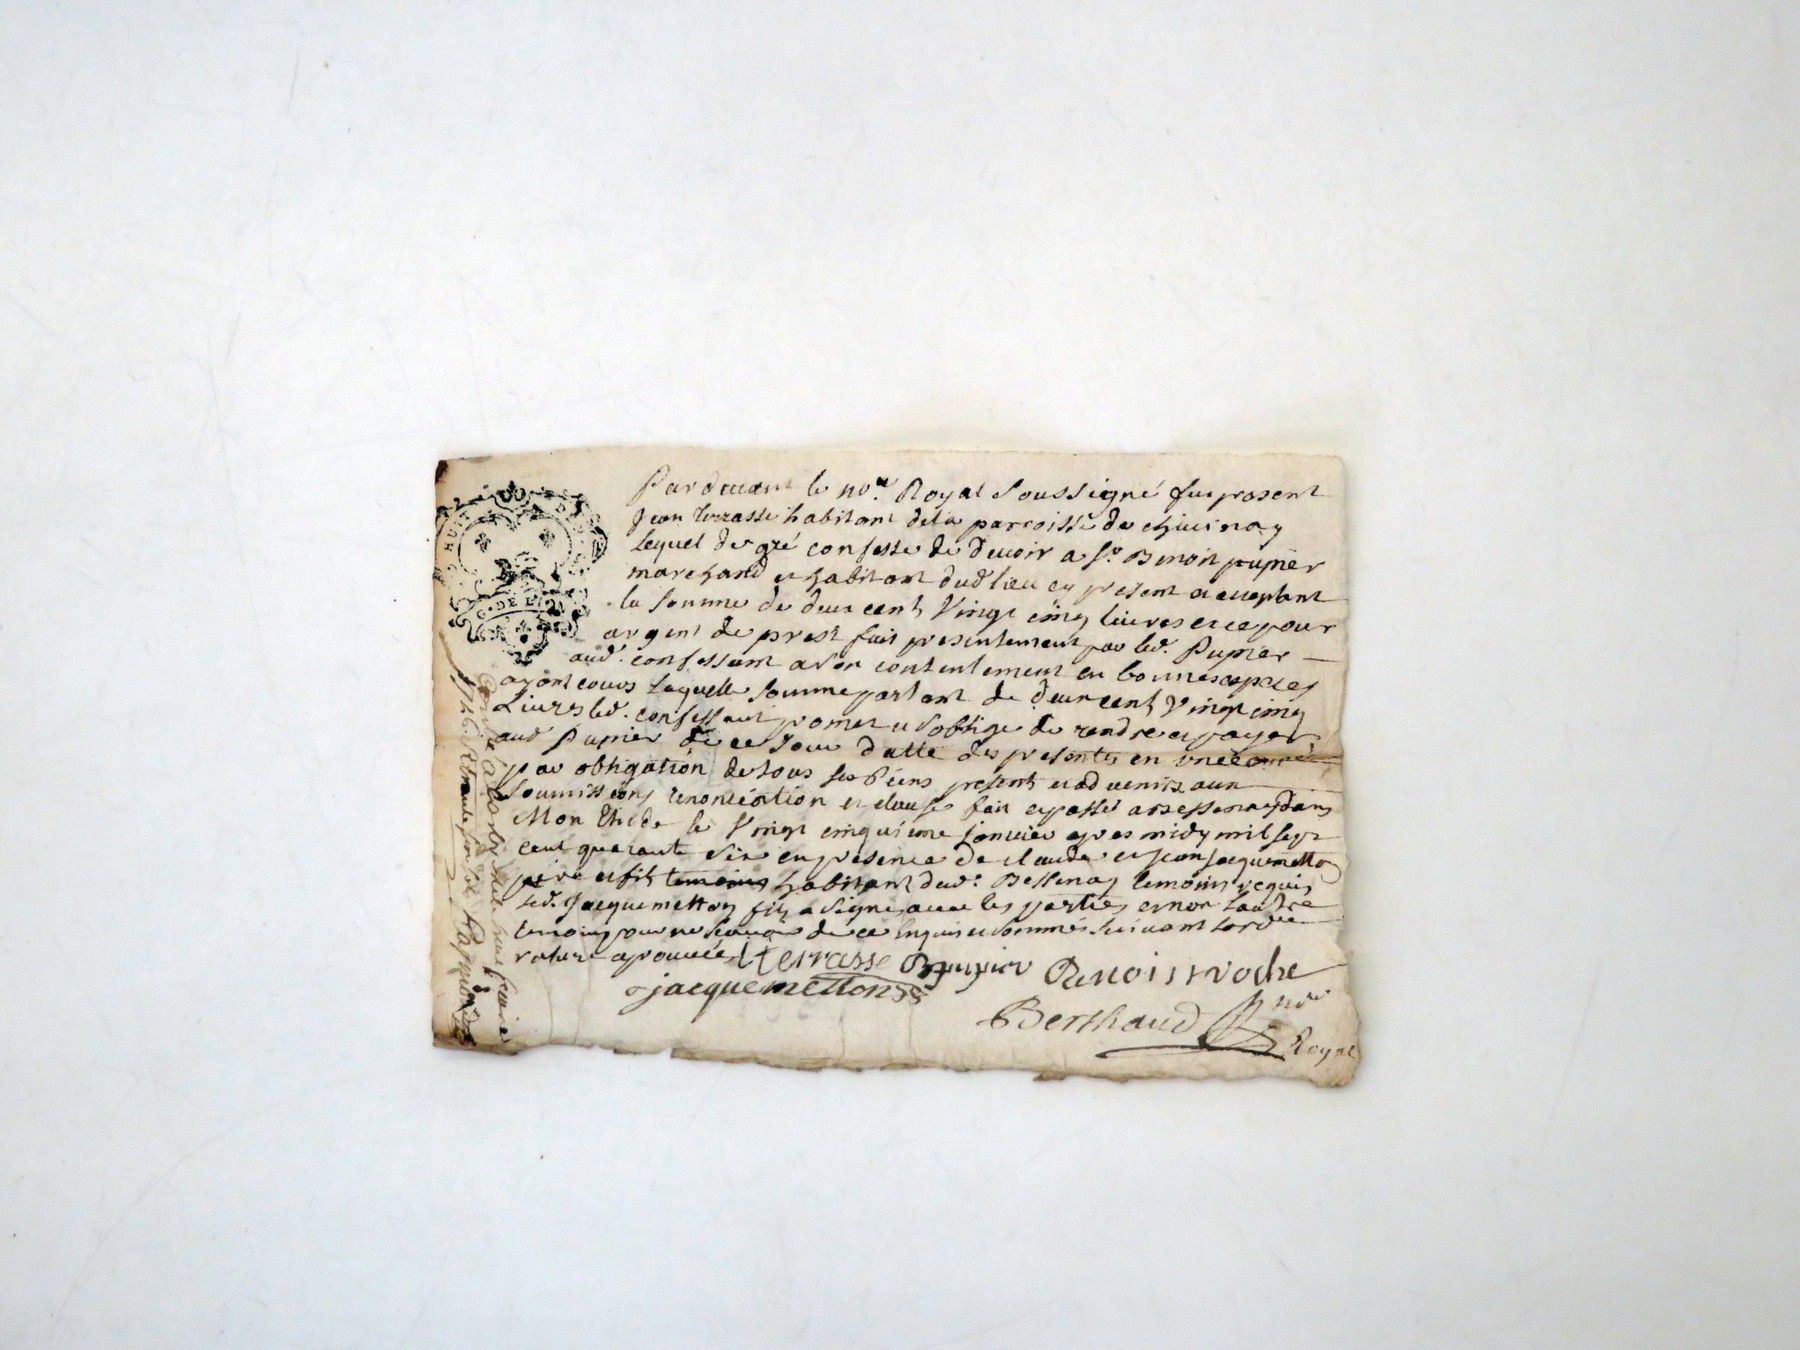 HUIT D
G. DE LYON
Par devant le no.re Royal soussigné fut present
Jean terrasse habitant dela parroisse de chivinay
lequel de gré confesse de devoir a sr. Benoit pupier
marchand et habitant dud. lieu cy present acceptant
la somme de deux cent Vingt cinq livres et ce pour
argent de prest fait presentement par led. Pupier
aud. confessant a son contentement en bonnes especes
ayant cours laquelle somme partant de deux cent Vingt cinq
Livres led. confessant promet et soblige de rendre et payer
aud Pupier de ce Jour datte des presentes en une année
par obligation de tous ses biens present et advenir aux
soumissions renonciation et clauses fait et passé a Bessenay dans
Mon Etude le Vingt cinquieme janvier apres midy mil sept
cent quarante six en presence de claude et jean jacquemetton
pere et fils temoins habitant dud. Bessenay temoins requis
led. Jacquemetton fils a signé avec les parties et non lautre
temoing pour ne scavoir de ce Enquis et sommé suivant lord.ce
rature aprouvée
terrasse Bpupier Benoist roche
jacquemetton
Berthaud no.re
Royal